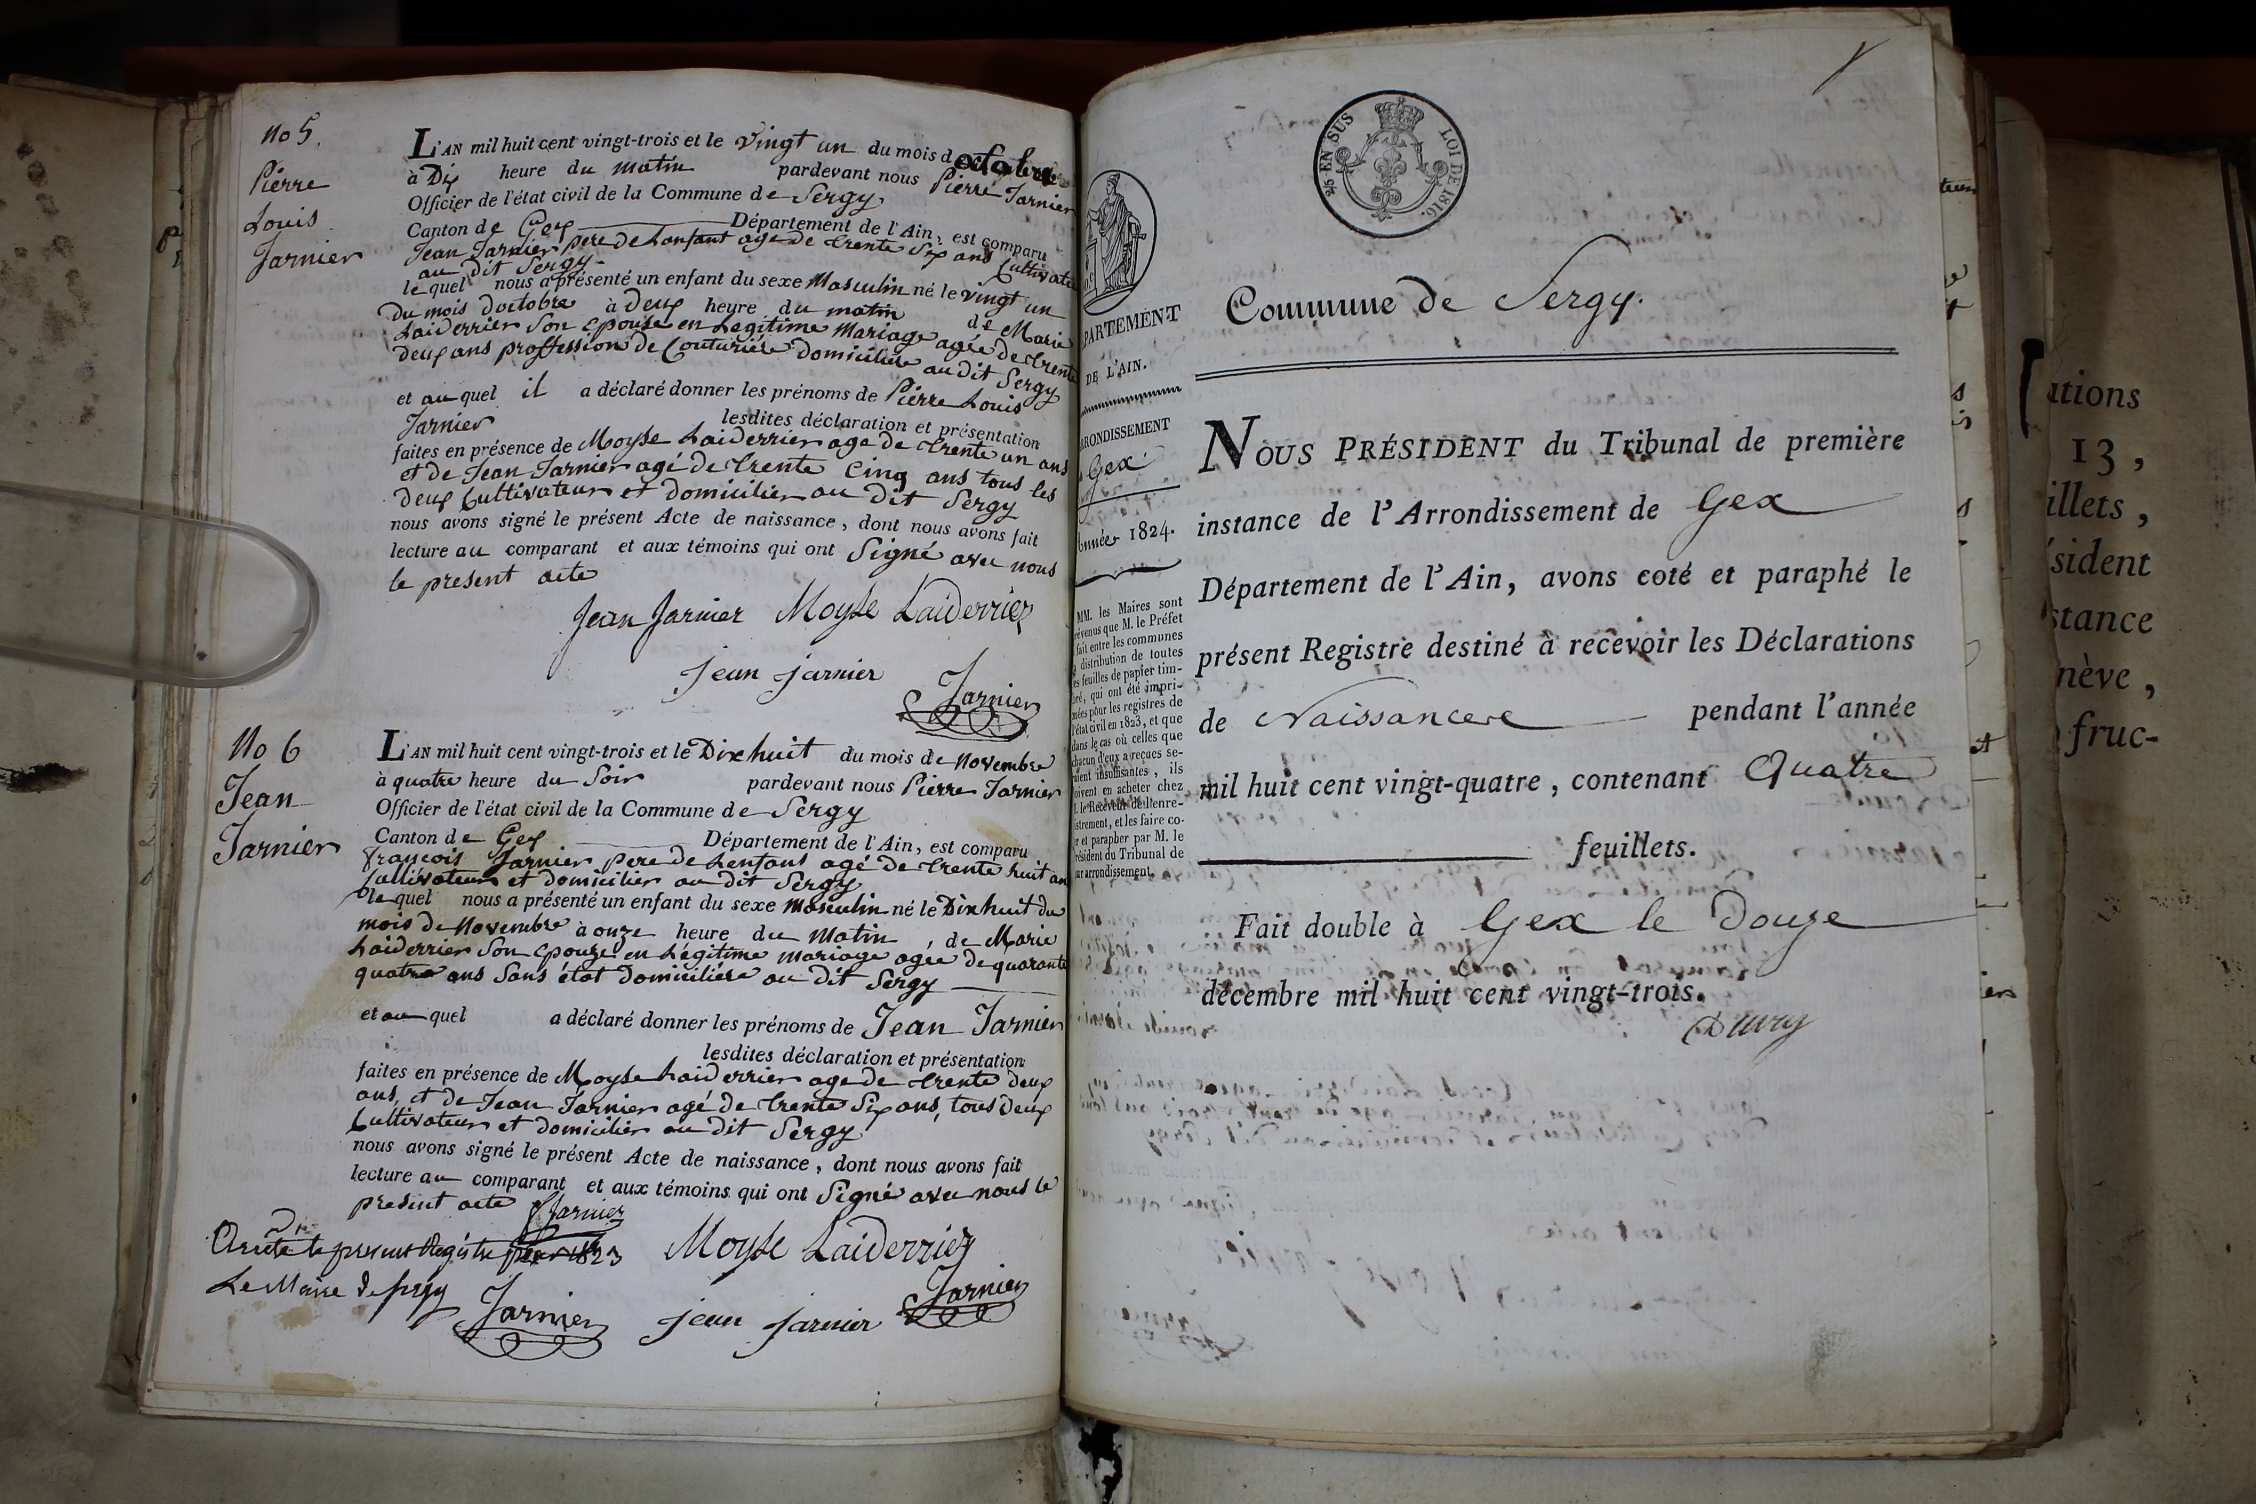 No 5.
Pierre
Louis
Jarnier
L'AN mil huit cent vingt-trois et le vingt un du mois d octobre
à Dix heure du matin pardevant nous Pierre Jarnier
Officier de l'état civil de la Commune de Sergy,
Canton de Gex Département de l'Ain, est comparu
Jean Jarnier pere de Lenfant age de trente Six ans Cultivateur
au dit Sergy
le quel nous a présenté un enfant du sexe Masculin né le vingt un
du mois doctobre à deux heure du matin de Marie
Laiderrier Son Epouse en Legitime Mariage agée de trente
deux ans proffession de Couturiére domiciliée au dit Sergy
et au quel il a déclaré donner les prénoms de Pierre Louis
Jarnier lesdites déclaration et présentation
faites en présence de Moyse Laiderrier age de trente un ans
et de Jean Jarnier agé de trente Cinq ans tous les
deux Cultivateur et domicilier au dit Sergy
nous avons signé le présent Acte de naissance, dont nous avons fait
lecture au comparant et aux témoins qui ont Signé avec nous
le present acte
Jean Jarnier Moyse Laiderrier
jean jarnier
Jarnier
No 6
Jean
Jarnier
L'AN mil huit cent vingt-trois et le Dix huit du mois de Novembre
à quatre heure du Soir pardevant nous Pierre Jarnier
Officier de l'état civil de la Commune de Sergy
Canton de Gex Département de l'Ain, est comparu
françois Jarnier pere de Lenfant agé de trente huit an
Cultivateur et domicilier au dit Sergy
le quel nous a présenté un enfant du sexe Masculin né le Dix huit du
mois de Novembre à onze heure du Matin, de Marie
Laiderrier Son Epouze en Légitime Mariage agée de quarante
quatre ans Sans état domiciliére au dit Sergy
et au quel a déclaré donner les prénoms de Jean Jarnier
lesdites déclaration et présentation
faites en présence de Moyse Laiderrier age de trente deux
ans, et de Jean Jarnier agé de trente Six ans, tous deux
Cultivateur et domicilier au dit Sergy
nous avons signé le présent Acte de naissance, dont nous avons fait
lecture au comparant et aux témoins qui ont Signé avec nous le
present acte fJarnier
Arrêté le present Régistre 1823 Moyse Laiderrier
Le Maire de Sergy
Jarnier jean jarnier Jarnier
25 EN SUS LOI DE 1816.
Commune de Sergy.
PARTEMENT
DE L'AIN.
RONDISSEMENT
Gex
Année 1824.
MM. les Maires sont
révenus que M. le Préfet
fait entre les communes
distribution de toutes
es feuilles de papier tim-
bré, qui ont été impri-
mées pour les registres de
l'état civil en 1823, et que
dans le cas où celles que
chacun d'eux a reçues se-
raient insuffisantes, ils
doivent en acheter chez
M. le Receveur de l'enre-
istrement, et les faire co-
er et parapher par M. le
Président du Tribunal de
ur arrondissement.
NOUS PRÉSIDENT du Tribunal de première
instance de l'Arrondissement de Gex
Département de l'Ain, avons coté et paraphé le
présent Registre destiné à recevoir les Déclarations
de Naissance pendant l'année
mil huit cent vingt-quatre, contenant Quatre
feuillets.
Fait double à Gex le Douze
décembre mil huit cent vingt-trois.
ations
13,
illets,
sident
stance
nève,
fruc-